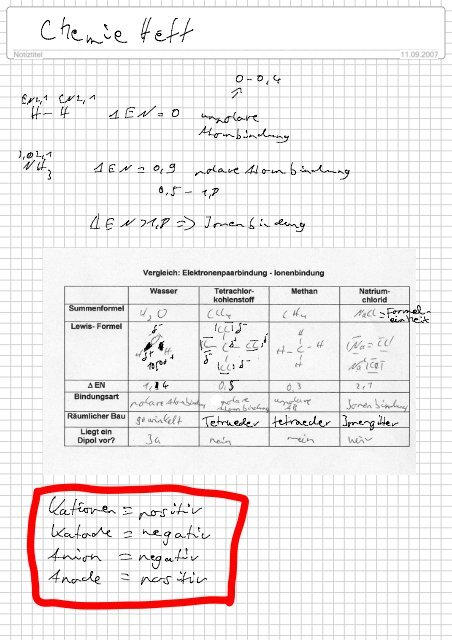 Chemie Heft
Notiztitel
11.09.2007
0-0,4
EN2,1 EN2,1
H-H ΔEN=0 unpolare
Atombindung
3,0 2,1
NH3 ΔEN=0,9 polare Atombindung
0,5-1,8
ΔEN>1,8 => Ionenbindung
Vergleich: Elektronenpaarbindung - Ionenbindung
Wasser Tetrachlor-kohlenstoff Methan Natrium-chlorid
Summenformel H2O CCl4 CH4 NaCl = Formel-einheit
Lewis- Formel
Δ EN 1,24 0,5 0,3 2,1
Bindungsart polare Atombindung polare Atombindung unpolare AB Ionenbindung
Räumlicher Bau gewinkelt Tetraeder tetraeder Ionengitter
Liegt ein Dipol vor? Ja nein nein nein
Kationen = positiv
Katode = negativ
Anion = negativ
Anode = positiv